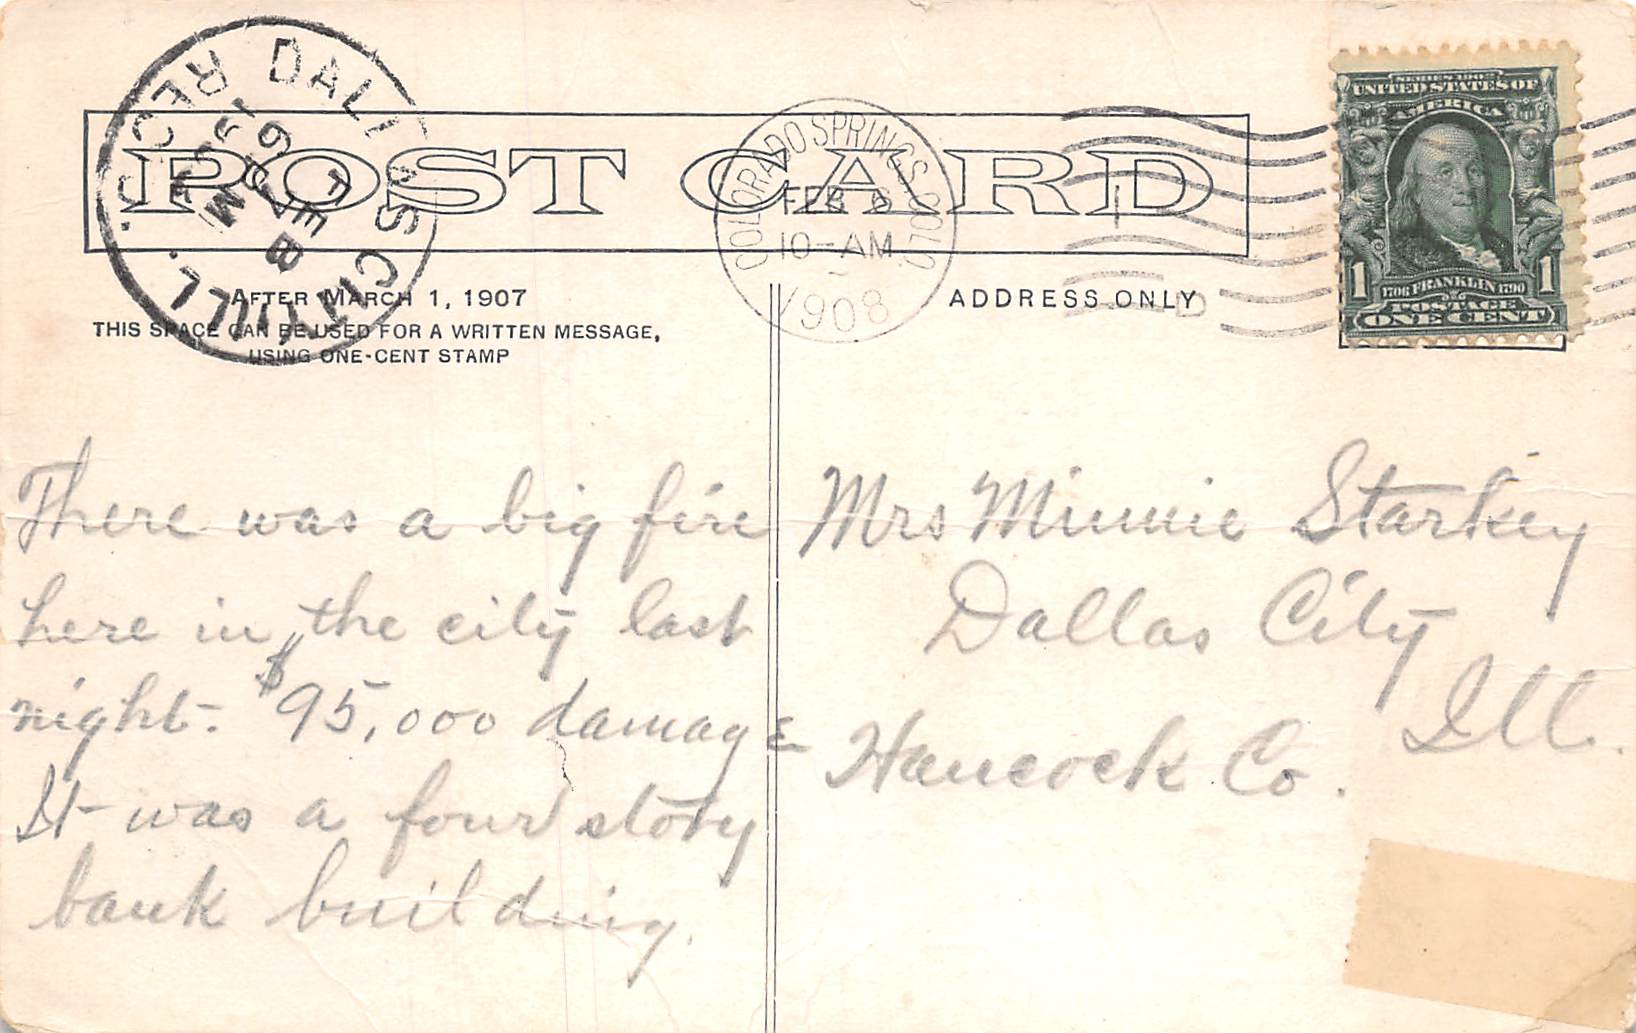 POST CARD
DALLAS CITY ILL.
REC'D.
FEB
COLORADO SPRINGS COLO.
FEB 6
10-AM
1908
SERIES 1902
UNITED STATES OF
AMERICA
1 1706 FRANKLIN 1790 1
POSTAGE
ONE CENT
AFTER MARCH 1, 1907
THIS SPACE CAN BE USED FOR A WRITTEN MESSAGE,
USING ONE-CENT STAMP
ADDRESS ONLY
There was a big fire
here in the city last
night. $95,000 damage
It was a four story
bank building.
Mrs Minnie Starkey
Dallas City
Ill.
Hancock Co.